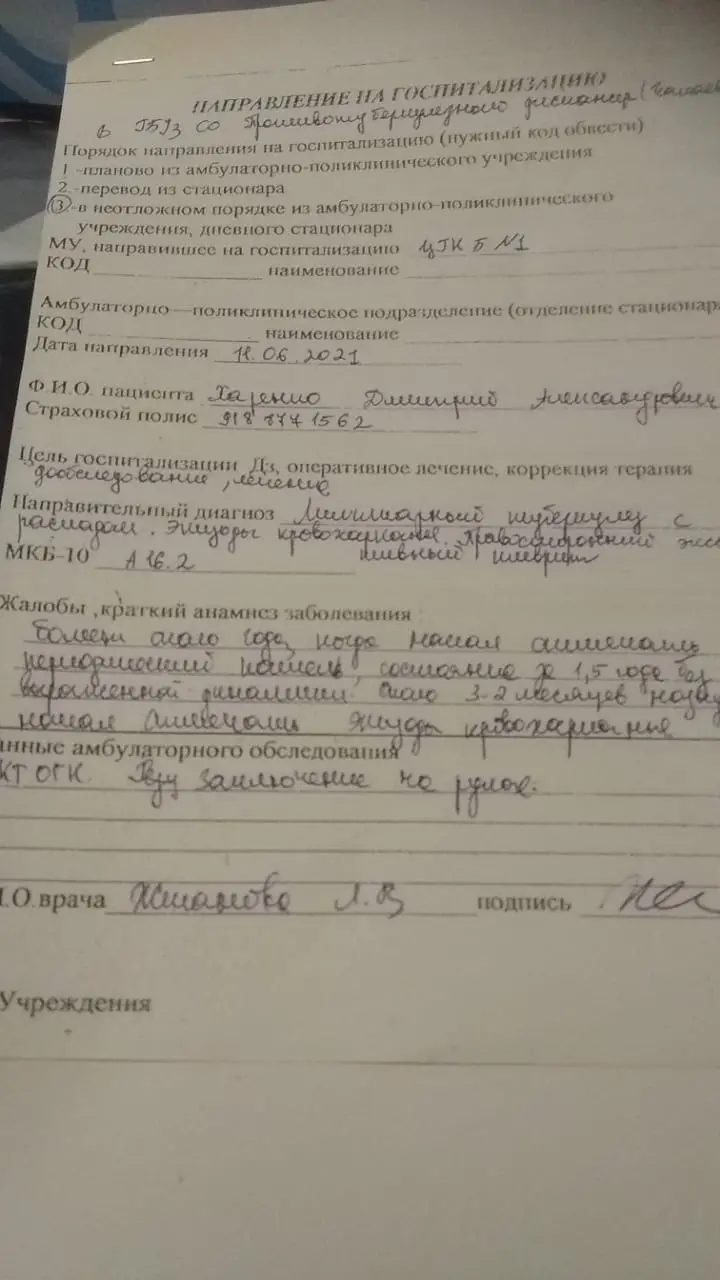 НАПРАВЛЕНИЕ НА ГОСПИТАЛИЗАЦИЮ
в ГБУЗ СО Противотуберкулезного диспансер
Порядок направления на госпитализацию (нужный код обвести)
1 -планово из амбулаторно-поликлинического учреждения
2.-перевод из стационара
3-в неотложном порядке из амбулаторно-поликлинического
учреждения, дневного стационара
МУ, направившее на госпитализацию ЦГКБ №1
КОД наименование
Амбулаторно—поликлиническое подразделение (отделение стационар
КОД наименование
Дата направления 11.06.2021
Ф И.О. пациента Дмитрий Александрович
Страховой полис
Цель госпитализации Дз, оперативное лечение, коррекция терапия
дообследование, лечение
Направительный диагноз Миллиарный туберкулез с
распадом. Эпизоды кровохарканья. Правосторонний экс
МКБ-10 А 16.2 плеврит
Жалобы ,краткий анамнез заболевания
Болеет около года, когда начал отмечать
периодический кашель, состояние 1,5 года без
выраженной динамики. Около 3-2 месяцев назад
начал отмечать эпизоды кровохарканья
анные амбулаторного обследования
КТ ОГК. заключение на руках.
.О.врача Л.В подпись
Учреждения